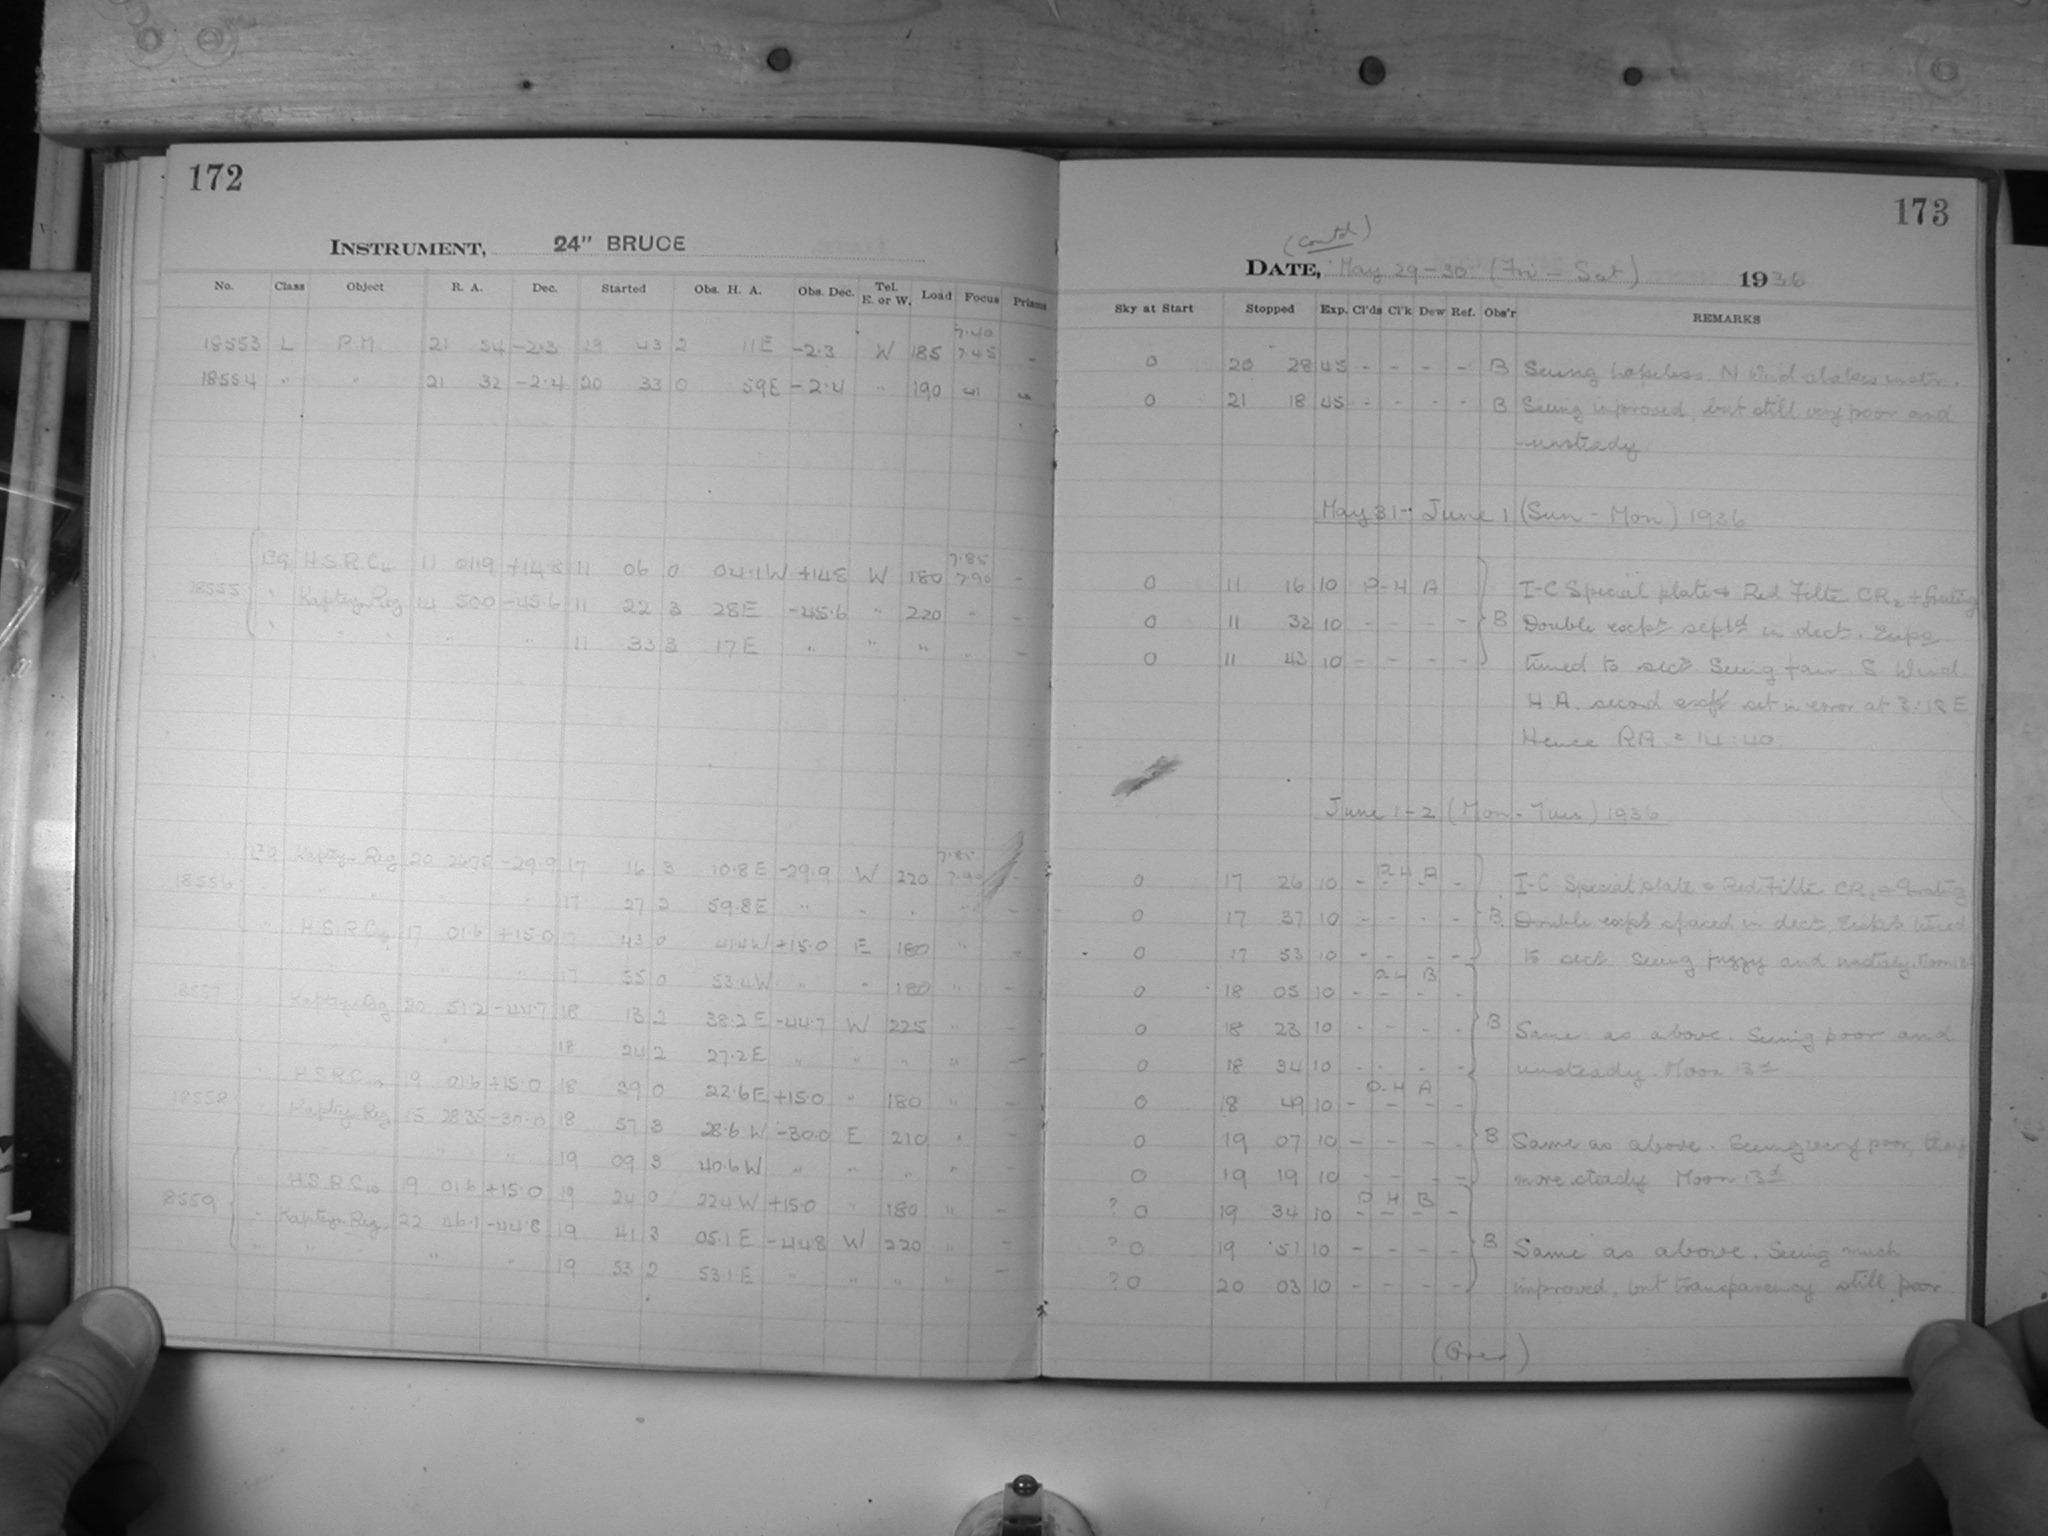 172
INSTRUMENT, 24" BRUCE
No. Class Object R. A. Dec. Started Obs. H. A. Obs. Dec. Tel. E. or W. Load Focus Prisms
7.40
18553 L P.M. 21 54 -2.3 19 43 2 11E -2.3 W 185 7.45 -
18554 " " 21 32 -2.4 20 33 0 59E -2.4 " 190 " "
7.85
H.S.R.C. 11 01.9 +14.8 11 06 0 04.1W +14.8 W 180 7.90 -
18555 " Kapteyn Reg 14 50.0 -45.6 11 22 3 28E -45.6 " 220 " -
" " " " " 11 33 3 17E " " " " -
7.85
Kapteyn Reg 20 -29.9 17 16 3 10.8E -29.9 W 220 7.90 -
18556 " " " " 17 27 2 59.8E " " " " -
" H.S.R.C. 17 01.6 +15.0 17 43 0 41.4W +15.0 E 180 "
" " 17 55 0 53.4W " " 180 " -
18557 " Kapteyn Reg 22 51.2 -44.7 18 13 2 38.2E -44.7 W 225 " -
" " 18 24 2 27.2E " " " " -
" H.S.R.C. 19 01.6 +15.0 18 39 0 22.6E +15.0 " 180 " -
18558 " Kapteyn Reg 15 28.35 -30.0 18 57 3 28.6W -30.0 E 210 " -
" " " " 19 09 3 40.6W " " " "
" H.S.R.C. 19 01.6 +15.0 19 24 0 22.4W +15.0 " 180 " -
18559 " Kapteyn Reg. 22 46.1 -44.8 19 41 3 05.1E -44.8 W 220 " -
" " " " " 19 53 2 53.1E " " " " -
173
(Contd)
DATE, May 29-30 (Fri - Sat) 1936
Sky at Start Stopped Exp. Cl'ds Cl'k Dew Ref. Obs'r REMARKS
0 20 28 45 - - - - B Seeing hopeless. N Wind shakes instr.
0 21 18 45 - - - - B Seeing improved, but still very poor and
unsteady
May 31 - June 1 (Sun - Mon) 1936
0 11 16 10 P-H A I-C Special plate & Red Filter CR2 + Grating
0 11 32 10 - - - - B Double exps septd in dect. Exps
0 11 43 10 - - - - timed to sect. Seeing fair. S Wind
H A. second exps set in error at 3:18 E
Hence RA = 14:40.
June 1-2 (Mon - Tues) 1936
0 17 26 10 - P-H A - I-C Special plate & Red Filter CR2 & Grating
0 17 37 10 - - - - B Double exps spaced in dect. timed
0 17 53 10 - - - - to sect. Seeing fuzzy and unsteady. Moon
P-H B
0 18 05 10 - - - -
0 18 23 10 - - - - B Same as above. Seeing poor and
0 18 34 10 - - - - unsteady. Moon 13d
P-H A
0 18 49 10 - - - -
0 19 07 10 - - - - B Same as above. Seeing very poor, tho
0 19 19 10 - - - - more steady Moon 13d.
P H B
? 0 19 34 10 - - - -
? 0 19 51 10 - - - - B Same as above. Seeing much
? 0 20 03 10 - - - - improved, but transparency still poor
(Over)